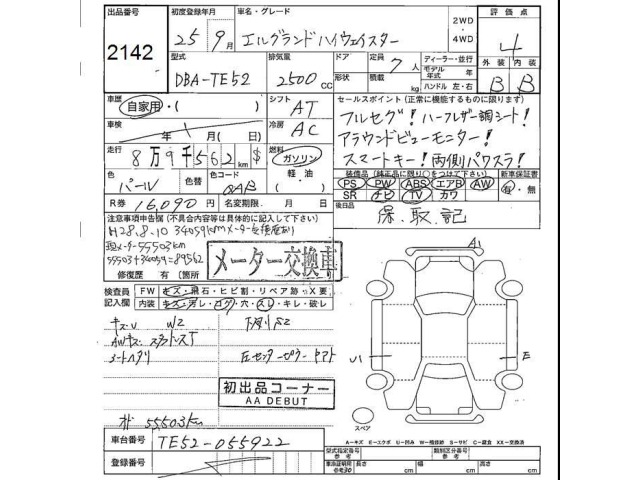 出品番号
2142
初度登録年月
25年9月
車名・グレード
エルグランドハイウェイスター
2WD
4WD
評価点
4
外装 内装
B B
型式
DBA-TE52
排気量
2500CC
ドア
形状
定員
7人
積載
kg
ディーラー・並行
モデル年式 年
ハンドル 左・右
車歴
自家用・( )
シフト
AT
車検
年 月 日
冷房
AC
セールスポイント(正常に機能するものに限ります)
フルセグ! ハーフレザー調シート!
アラウンドビューモニター!
スマートキー! 両側パワスラ!
走行
8万9千562km $
燃料
ガソリン
軽油
( )
色
パール
色替
色コード
QAB
装備品(純正品に限り○をつけて下さい)
PS PW ABS エアB AW
SR ナビ TV カワ
新車保証書
有・無
R券 16,090円
名変期限 月 日
後日品
保、取、記
注意事項申告欄(不具合内容等は具体的に記入して下さい)
H28.8.10 34059kmメーター交換歴あり
現メーター55503km
55503+34059=89562
修復歴 有(箇所
メーター交換車
検査員記入欄
FW キズ・飛石・ヒビ割・リペア跡・X要
内装 キズ・汚レ・コゲ・穴・スレ・キレ・破レ
キズU W2
下廻りS2
AWキズ
シートヘタリ
初出品コーナー
AA DEBUT
55503km
車台番号
TE52-055922
登録番号
A1
U1
E
スペア
A－キズ E－エクボ U－凹み W－補修跡 S－サビ C－腐食 XX－交換済
型式指定番号
参考
類別区分番号
参考
車庫証明用
参考30
長さ cm
幅 cm
高さ cm